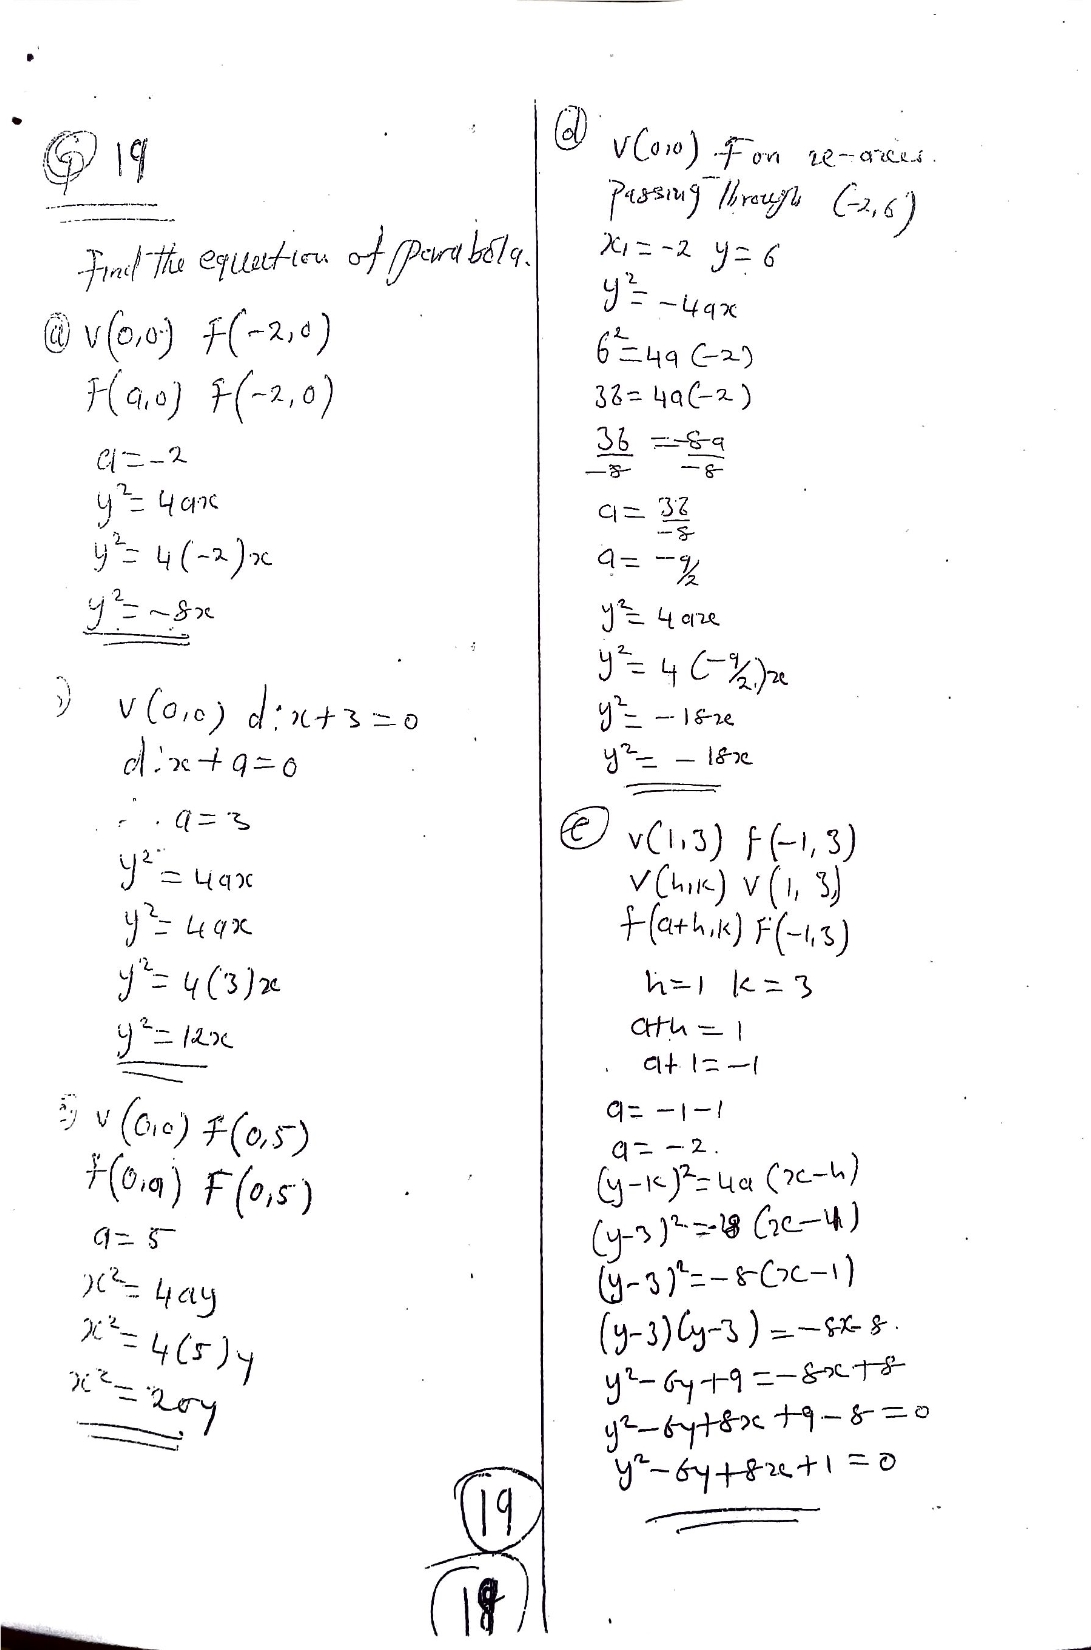 Q 19
Find the equation of parabola.
(a) V(0,0) F(-2,0)
F(a,0) F(-2,0)
a=-2
y²=4ax
y²=4(-2)x
y²=-8x
V(0,0) d:x+3=0
d:x+a=0
∴ a=3
y²=4ax
y²=4ax
y²=4(3)x
y²=12x
V(0,0) F(0,5)
F(0,a) F(0,5)
a=5
x²=4ay
x²=4(5)y
x²=20y
19
18
(d) V(0,0) F on x-axis.
Passing Through (-2,6)
x₁=-2 y=6
y²=-4ax
6²=4a(-2)
36=4a(-2)
36/-8 = -8a/-8
a=36/-8
a=-9/2
y²=4ax
y²=4(-9/2)x
y²=-18x
y²=-18x
(e) V(1,3) F(-1,3)
V(h,k) V(1,3)
F(a+h,k) F(-1,3)
h=1 k=3
a+h=1
a+1=-1
a=-1-1
a=-2.
(y-k)²=4a(x-h)
(y-3)²=-8(x-h)
(y-3)²=-8(x-1)
(y-3)(y-3)=-8x-8.
y²-6y+9=-8x+8
y²-6y+8x+9-8=0
y²-6y+8x+1=0